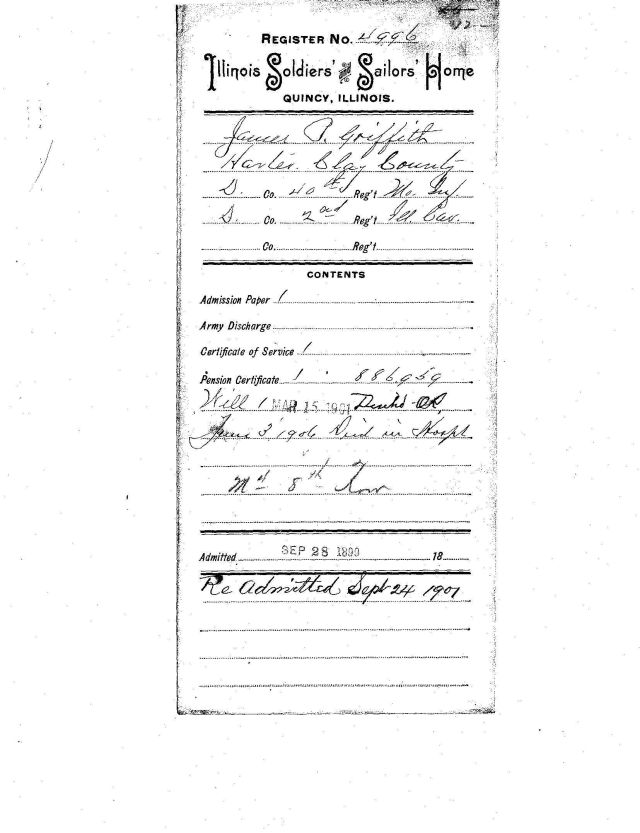 REGISTER NO. 4996
Illinois Soldiers' and Sailors' Home
QUINCY, ILLINOIS.
James P. Griffith
Harter. Clay County
D. Co. 40th Reg't Mo. Inf.
D. Co. 2nd Reg't Ill Cav.
Co. Reg't
CONTENTS
Admission Paper 1
Army Discharge
Certificate of Service 1
Pension Certificate 1 886959
Will 1 MAR 15 1901
3 1906 Died in Hospt
8th
Admitted SEP 28 1899 18
Re Admitted Sept 24 1901